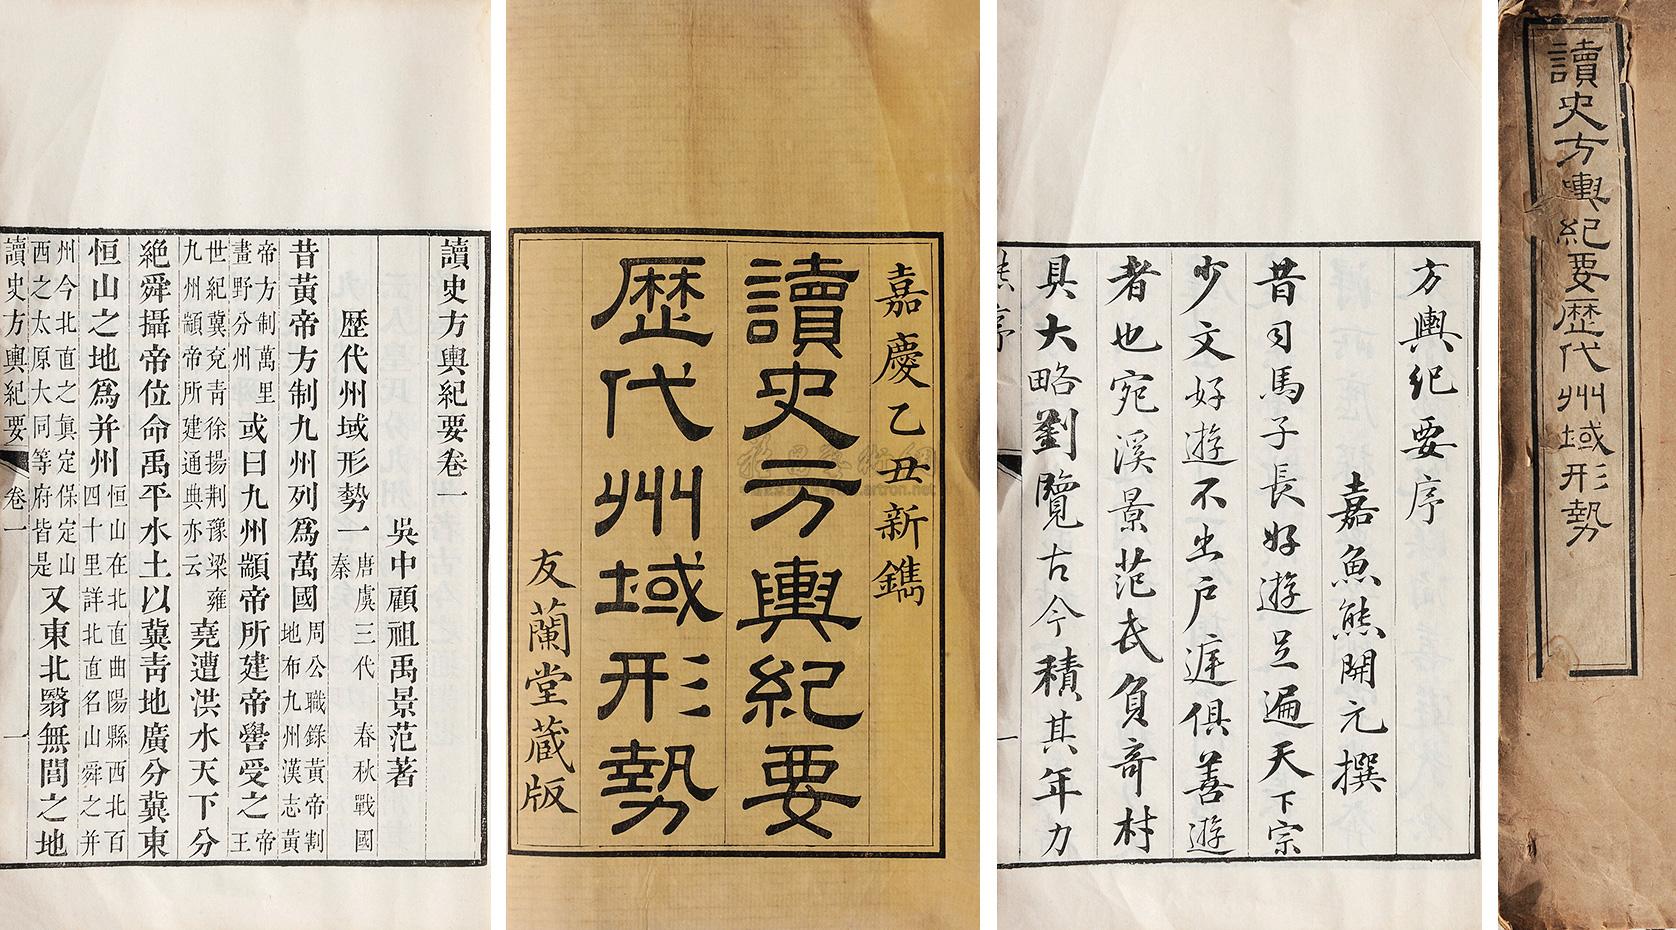 讀史方輿紀要歷代州域形勢
方輿紀要序
嘉魚熊開元撰
昔司馬子長好遊足遍天下宗
少文好遊不出戶庭俱善遊
者也宛溪景范氏負奇材
具大略劉覽古今積其年力
熊序 一
嘉慶乙丑新鐫
讀史方輿紀要
歷代州域形勢
友蘭堂蔵版
讀史方輿紀要卷一
吳中顧祖禹景范著
歷代州域形勢一 唐虞三代 春秋戰國 秦
昔黃帝方制九州列爲萬國 周公職錄黃帝割地布九州漢志黃
帝方制萬里畫野分州 或曰九州顓帝所建帝嚳受之 帝王
世紀冀兗靑徐揚荆豫梁雍九州顓帝所建通典亦云 堯遭洪水天下分
絶舜攝帝位命禹平水土以冀靑地廣分冀東
恒山之地爲并州 恒山在北直曲陽縣西北百四十里詳北直名山舜之并
州今北直之眞定保定山西之太原大同等府皆是 又東北醫無閭之地
讀史方輿紀要 卷一 一